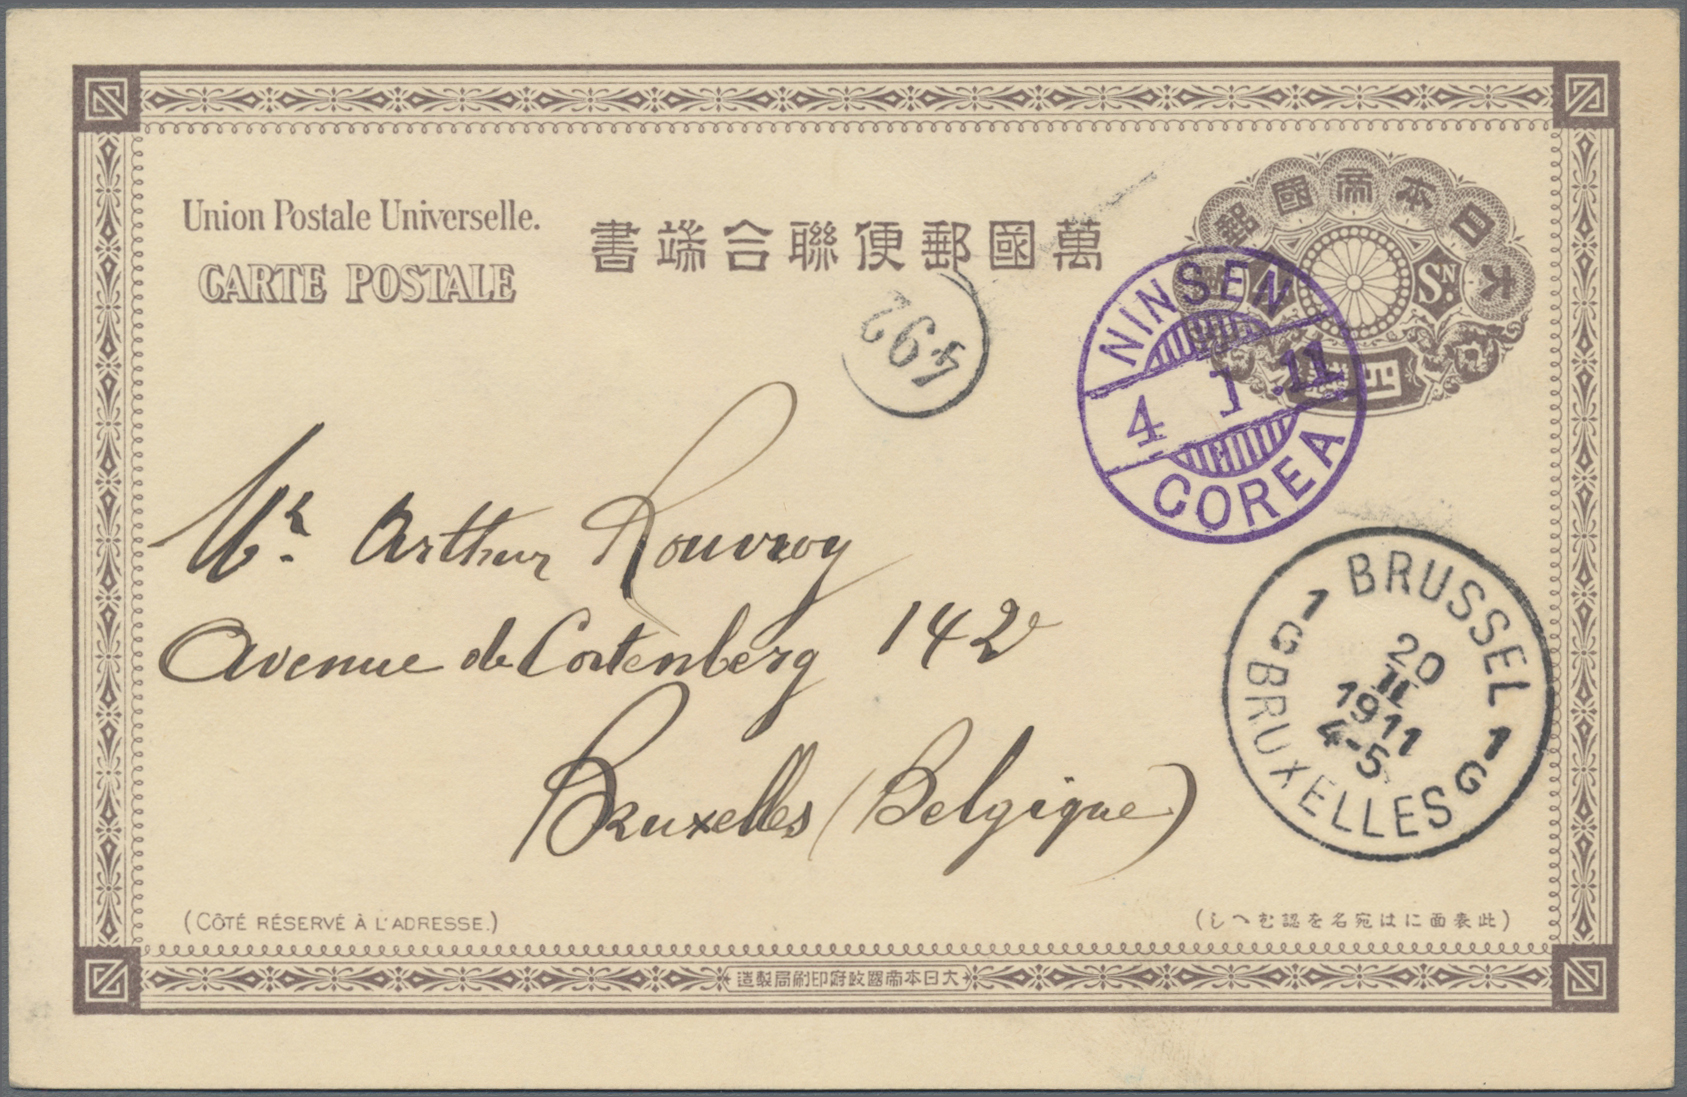 Union Postale Universelle.
CARTE POSTALE
萬國郵便聯合端書
大日本帝國郵
SN.
492
NINSEN
4 . 1 . 11
COREA
Mr. Arthur Rouvroy
Avenue de Cortenberg 142
Bruxelles (Belgique)
1 BRUSSEL 1
G G
20
II
1911
4-5
BRUXELLES
(CÔTÉ RÉSERVÉ À L'ADRESSE.)
(此表面には宛名を認むへし)
大日本帝國政府印刷局製造